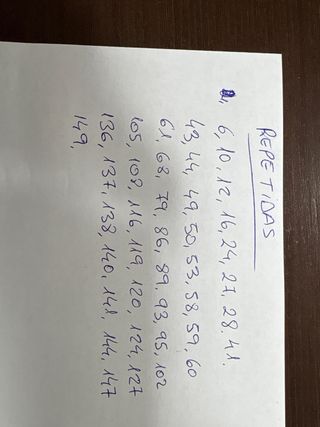 REPETIDAS
6, 10, 12, 16, 24, 27, 28. 41.
43, 44, 49, 50, 53, 58, 59, 60
61, 68, 79, 86, 89. 93, 95, 102
105, 108, 116, 119, 120, 124, 127
136, 137, 138, 140, 141, 144, 147
149,